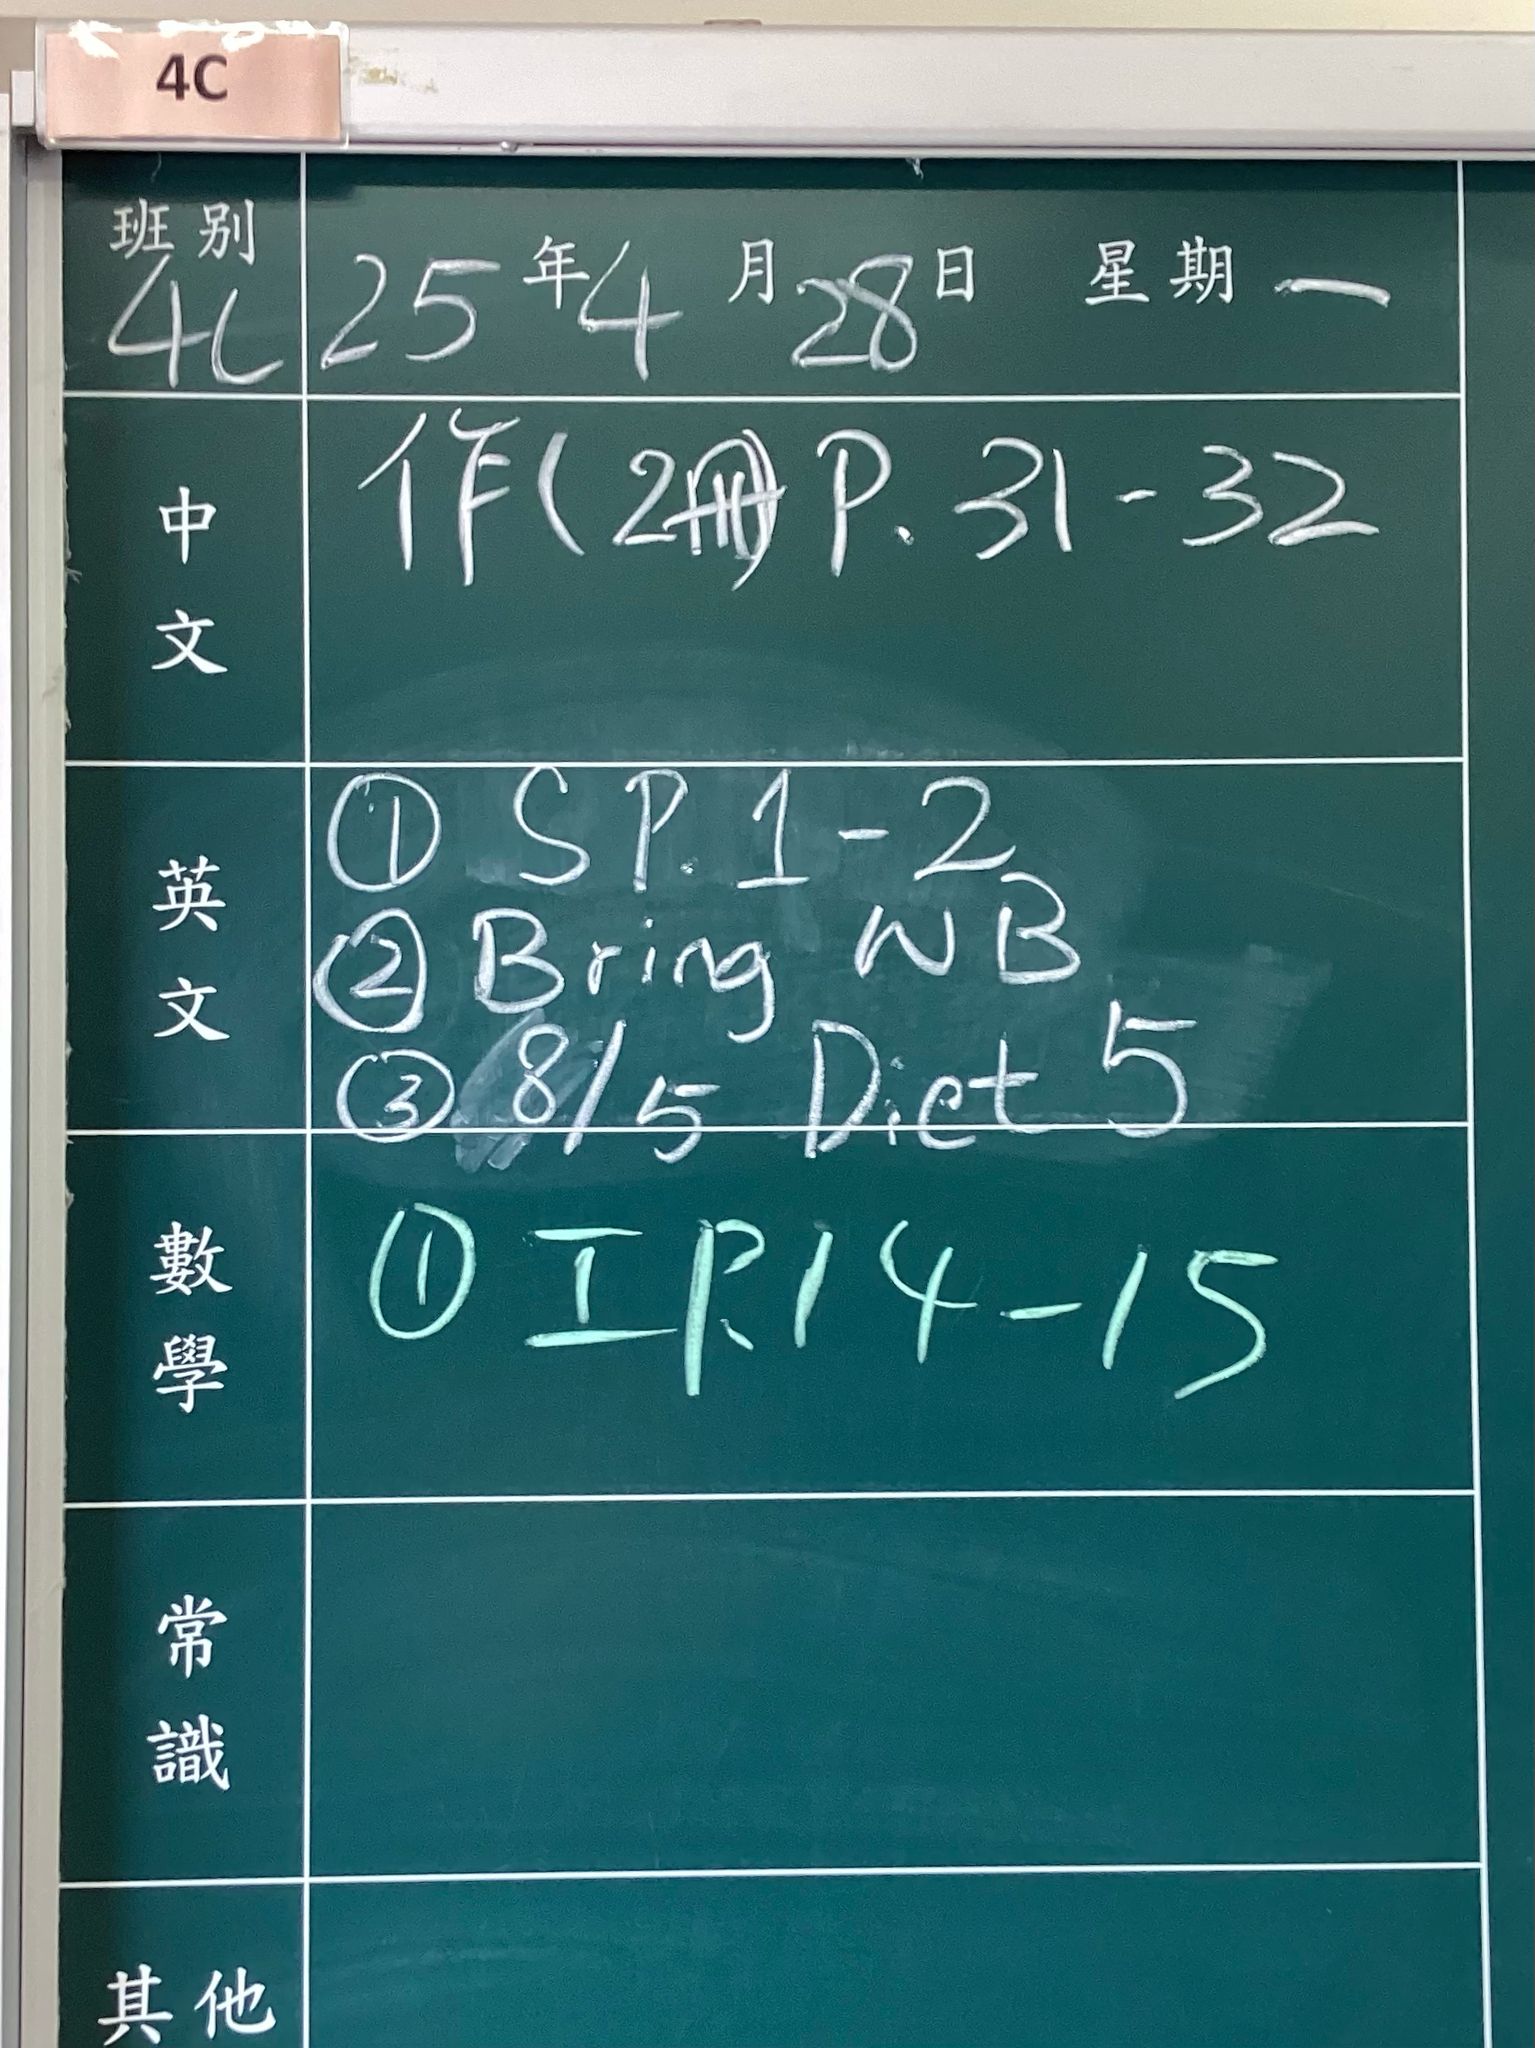 4C
班別 4C 25年4月28日 星期一
中文 作(2冊) P. 31-32
英文
① S P. 1-2
② Bring NB
③ 8/5 Dict 5
數學 ① I P. 14-15
常識
其他